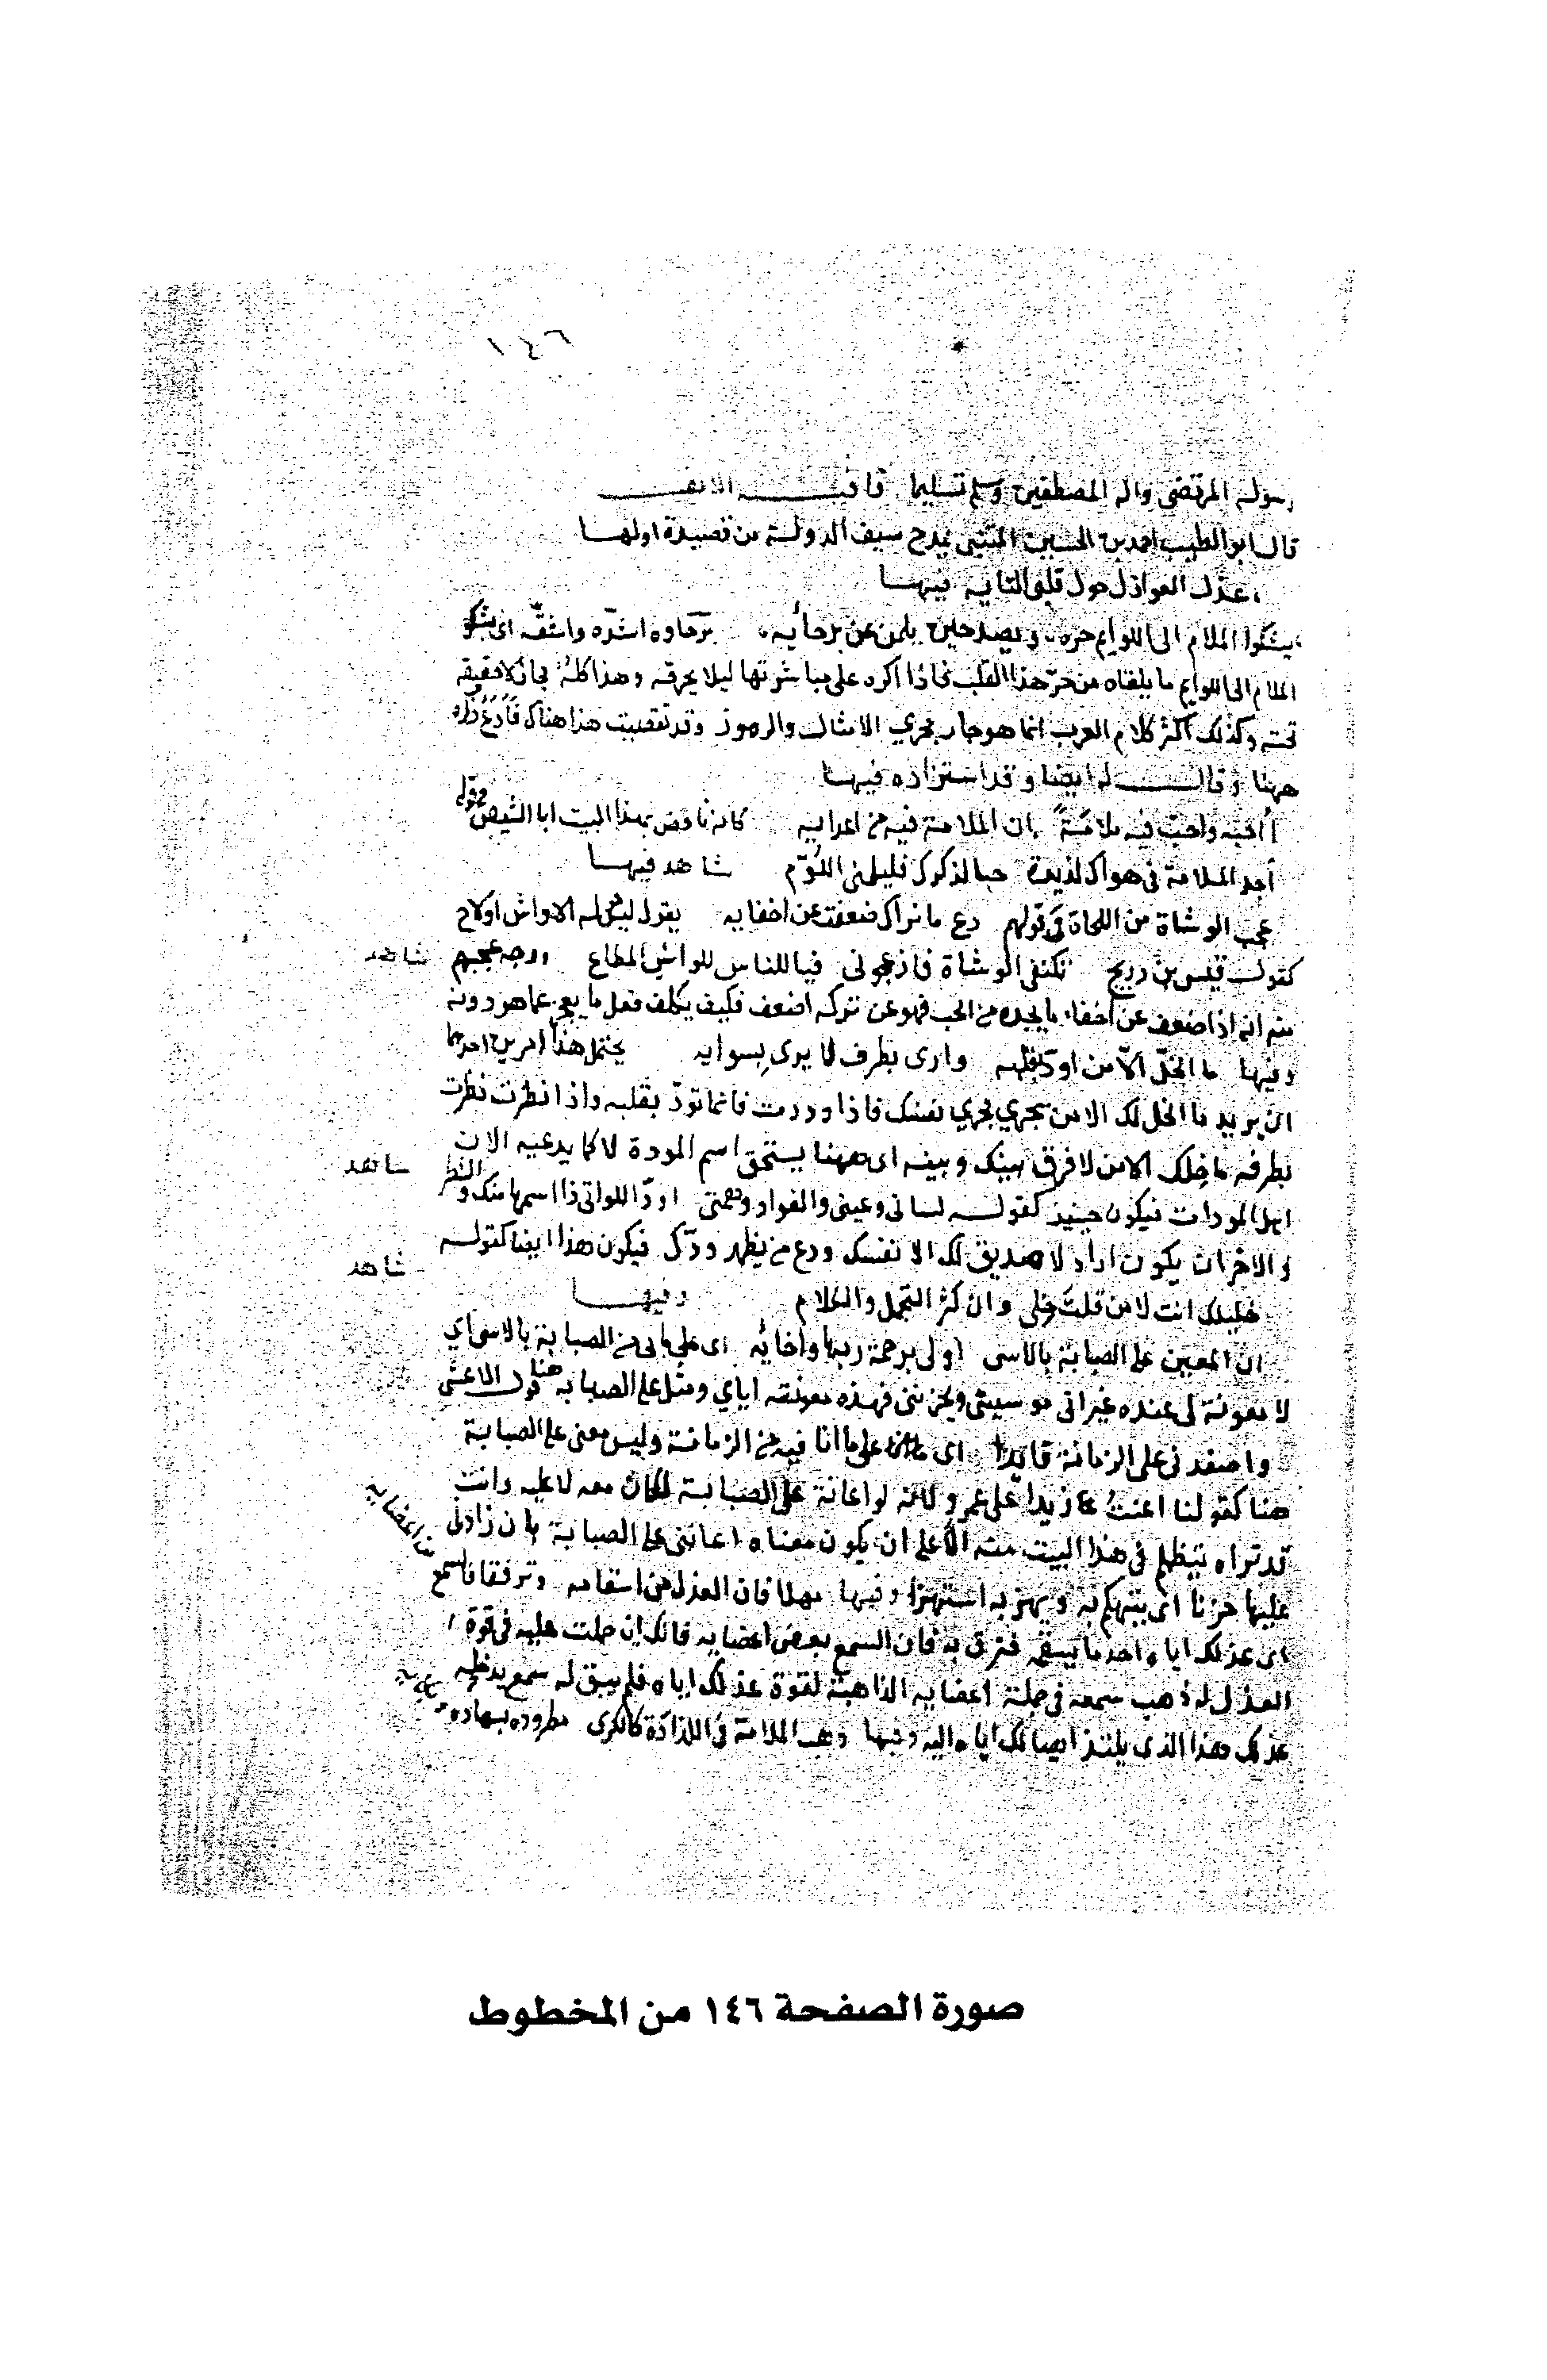 ١٤٦
رسوله المرتضى واله المصطفين وسلم تسليما قافيـــة الالف
قال ابو الطيب احمد بن الحسين المتنبي يمدح سيف الدولة من قصيدة اولهـــا
عذل العواذل حول قلبي التايه فيهـــا
يشكوا الملام الى اللوايم حره ويصد حين يلمن عن برحائه برحاوه اشده واشقه اى يشكو
الملام الى اللوايم ما يلقاه من حر هذا القلب فاذا اكره على مباشرتها ليلا يحرقه وهذا كله مجاز لا حقيقة
تحته وكذلك اكثر كلام العرب انما هو جار مجري الامثال والرموز وقد تقصيت هذا هناك
ههنا وقالـــــ له ايضا وقد استزاده فيهـــا
أأحبه واحب فيه ملامة ان الملامة فيه من اعدايه كانه ناقض بهذا البيت ابا الشيص في قوله
اجد الملامة في هواك لذيذة حبا لذكرك فليلمني اللوم شاهد فيهـــا
عجب الوشاة من اللحاة في قولهم دع ما نراك ضعفت عن اخفايه يقول ليس له الا واش او لاح
كقول قيس بن ذريح تكنفني الوشاة فازعجوني فيا للناس للواشي المطاع ووجه عجبهم
شاهد
منه انه اذا ضعف عن اخفاء ما يجده من الحب فهو عن تركه اضعف فكيف يكلف فعل ما يعجز عما هو دونه
وفيها ما الخل الا من اود بقلبه وارى بطرف لا يرى بسوايه يحتمل هذا امرين احدهما
ان يريد ما الخل لك الا من يجري مجري نفسك فاذا وددت فانما تود بقلبه واذا نظرت نظرت
بطرفه ما خلك الا من لا فرق بينك وبينه اى ههنا يستحق اسم المودة لا كما يدعيه الان
اهل المودات فيكون حينيذ كقولـــه لساني وعيني والفواد وهمتي اود اللواتي ذا اسمها منك والشطر
شاهد
والاخر ان يكون اراد لا صديق لك الا نفسك ودع من يظهر ودك فيكون هذا ايضا كقولـــه
شاهد
خليلك انت لا من قلت خلي وان كثر التجمل والكلام وفيهـــا
ان المعين على الصبابة بالاسى اولى برحمة ربها واخائه اى على ما بي من الصبابة بالاسى اي
لا معونة لي عنده غير انى هو سيئى ويحزنني فهذه معونته اياي ومثل على الصبابه هنا قول الاعشى
واصفدني على الزمانة قايدا اى على ما انا فيه من الزمانة وليس معنى على الصبابة
هنا كقولنا اعنت زيدا على عمرو لانه لو اعانه على الصبابة لكان معه لا عليه وانت
قد تراه يتظلم في هذا البيت منه الا على ان يكون معناه اعانني على الصبابة بان زادني
عليها حزنا اى يتهكم به ويهزء به استهزا وفيها مهلا فان العذل من اسقامه وترفقا فالسمع
من اعضايه
اى عذلك اياه احد ما يسقمه فترفق به فان السمع بعض اعضايه فانك ان حملت عليه في قوة
العذل له ذهب سمعه في جملة اعضايه الذاهبة لقوة عذلك اياه فلم يبق له سمع يدخله
عذلك وهذا الذي يلتذ ايصالك اياه اليه وفيها وهب الملامة في اللذاذة كالكرى مطرودة بسهاده
وبكايه
صورة الصفحة ١٤٦ من المخطوط